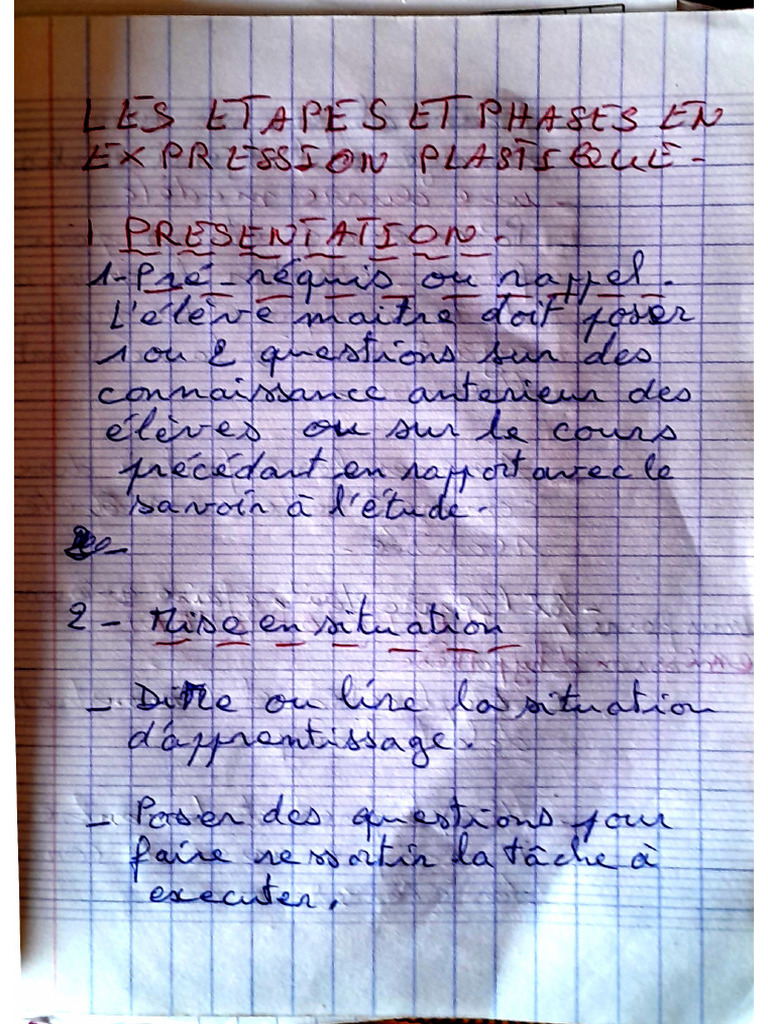 LES ETAPES ET PHASES EN
EXPRESSION PLASTIQUE-
I PRESENTATION.
1-Pré-réquis ou rappel.
L'élève maitre doit poser
1 ou 2 questions sur des
connaissance anterieur des
élèves ou sur le cours
précédant en rapport avec le
savoir à l'étude-
2- Mise en situation
- Dire ou lire la situation
d'apprentissage.
- Poser des questions pour
faire ressortir la tâche à
executer.